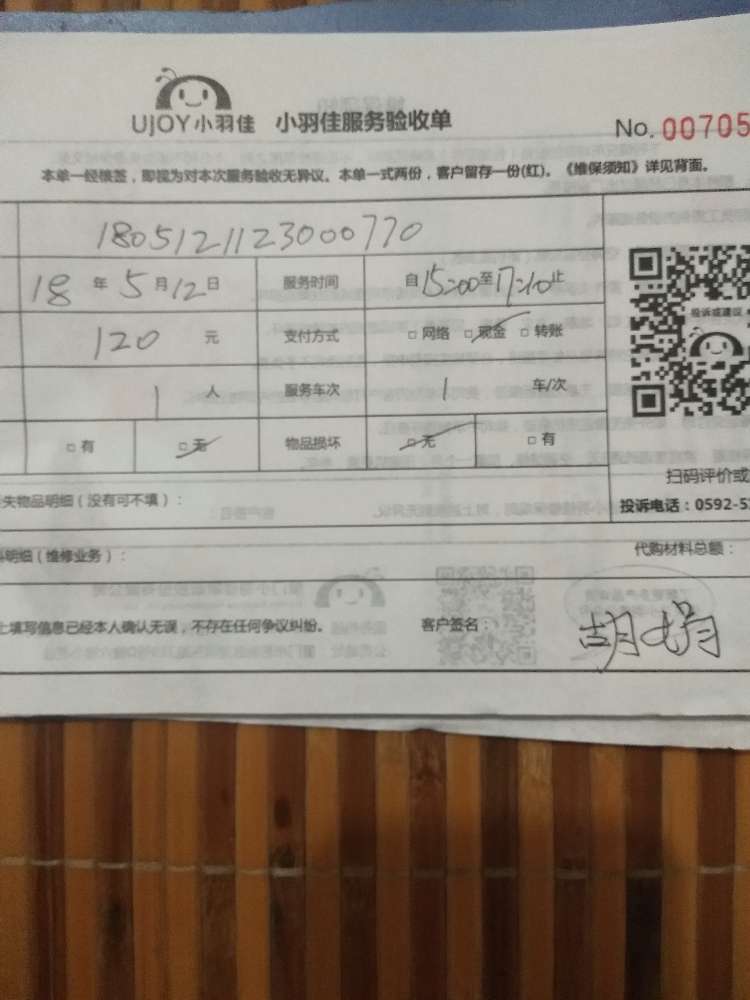 UJOY小羽佳 小羽佳服务验收单 No. 00705
本单一经核签，即视为对本次服务验收无异议。本单一式两份，客户留存一份(红)。《维保须知》详见背面。
1805121123000770
18 年 5 月 12 日 服务时间 自 15:00 至 17:10 止
120 元 支付方式 □ 网络 □ 现金 □ 转账
1 人 服务车次 1 车/次
□ 有 □ 无 物品损坏 □ 无 □ 有
投诉或建议
扫码评价或
失物品明细（没有可不填）：
投诉电话：0592-5
明细（维修业务）：
代购材料总额：
上填写信息已经本人确认无误，不存在任何争议纠纷。 客户签名： 胡娟